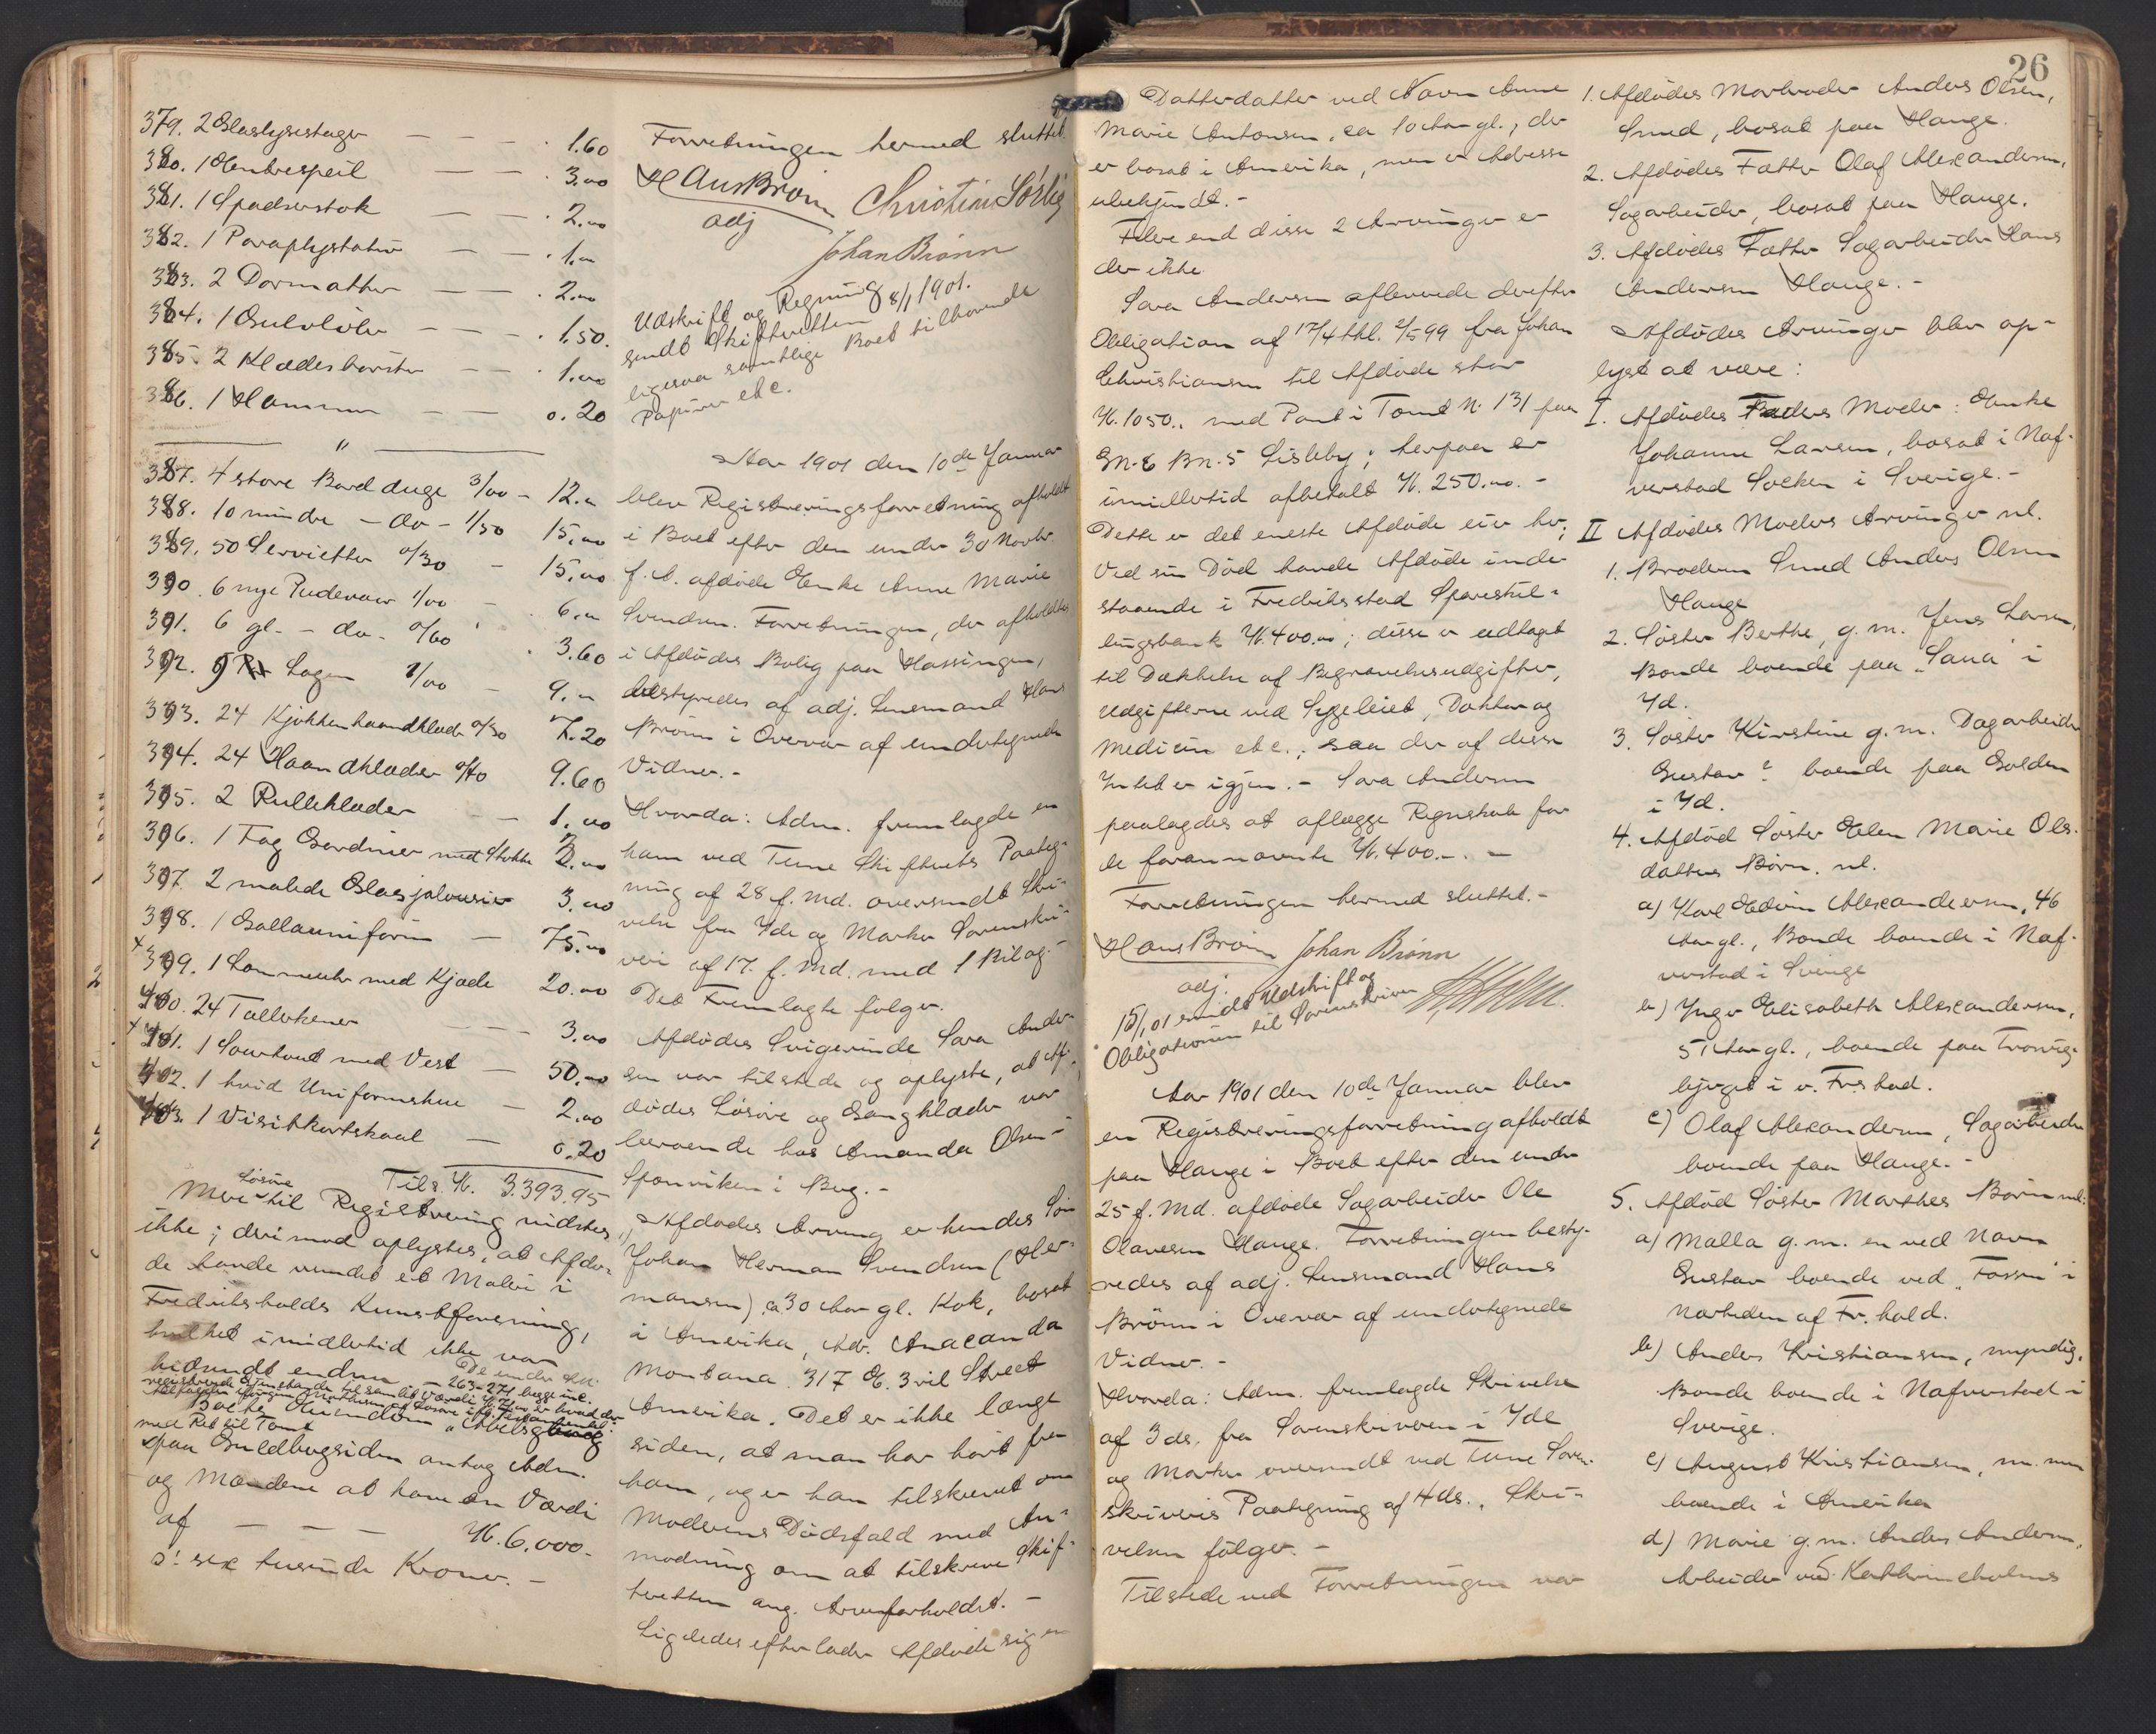 379. 2 Glaslysestager — — - 1.60
380. 1 Entrespeil — — - 3.00
381. 1 Spadserstok — — 2.00
382. 1 Paraplystativ — — - 1.00
383. 2 Dørmatter — — - 2.00
384. 1 Gulvløber — — - 1.50.
385. 2 Klædesbørster — — - 1.00
386. 1 Hammer — — 0.20
"
387. 4 store Bordduge 3/00 - 12.00
388. 10 mindre - do - 1/50 15.00
389. 50 Servietter 0/30 - 15.00
390. 6 nye Pudevaar 1/00 - 6.00
391. 6 gl. - do. 0/60 - 3.60
392. 9 Lagen 1/00 - 9.00
393. 24 Kjøkkenhaandklæder 0/30 7.20
394. 24 Haandklæder 0/40 9.60
395. 2 Rulleklæder - - 1.00
396. 1 Fag Gardiner med Stokke 2.00
397. 2 malede Glasjalousier 3.00
398. 1 Gallauniform — 75.00
399. 1 Lommeuhr med Kjæde 20.00
400. 24 Tallerkener — — - 3.00
401. 1 Sourtout med Vest — 50.00
402. 1 hvid Uniformshue — 2.00
403. 1 Visitkortskaal — 0.20
Tils. Kr. 3.393.95
Mere Løsøre til Registrering vidstes
ikke; derimod oplystes, at Afdø-
de havde vundet et Maleri i
Fredrikshalds Kunstforening,
hvilket imidlertid ikke var
hidsendt endnu. — De under No.
263-271 begge incl.
registrerede Gjenstande til samlet Værdi
med Ret til Tomt
paa Guldbergsiden antog Adm.
og Mændene at have en Værdi
af — — — Kr. 6.000.-
ɔ: sex tusinde Kroner. -
Forretningen hermed sluttet.
Hans Brønn Christian Sørlig
adj
Johan Brønn
Udskrift og Regning
sendt Skifteretten 8/1 1901.
ligesaa samtlige Boet tilhørende
Papirer etc.
Aar 1901 den 10de Januar
blev Registreringsforretning afholdt
i Boet efter den under 30 Novbr.
f. A. afdøde Enke Anne Marie
Svendsen. Forretningen, der afholdtes
i Afdødes Bolig paa Hassingen,
bestyredes af adj. Lensmand Hans
Brønn i Overvær af undertegnede
Vidner. -
Hvorda: Adm. fremlagde en
ham ved Tune Skifterets Paateg-
ning af 28 f. Md. oversendt Skri-
velse fra Idde og Marker Sorenskri-
veri af 17. f. Md. med 1 Bilag. -
Det Fremlagte følger.
Afdødes Svigerinde Sara Ander-
sen var tilstede og oplyste, at Af-
dødes Løsøre og Gangklæder var
beroende hos Amanda Olsen i
Sponviken i Berg. -
Afdødes Arving er hendes Søn
Johan Herman Svendsen (Her-
mansen), ca 30 Aar gl. Kok, bosat
i Amerika, Adr. Anaconda
Montana. 317 E. 3 rd Street
Amerika. Det er ikke længe
siden, at man har hørt fra
ham, og er han tilskrevet om
Moderens Dødsfald med An-
modning om at tilskrive Skif-
teretten ang. Arveforholdet. -
Ligeledes efterlader Afdøde sig en
26
Datterdatter ved Navn Anne
Marie Antonsen, ca 10 Aar gl., der
er bosat i Amerika, men er Adresse
ubekjendt. -
Flere end disse 2 Arvinger er
der ikke.
Sara Andersen afleverede derefter
Obligation af 17/4 thl. 2/5 99 fra Johan
Christiansen til Afdøde stor
Kr. 1050.. med Pant i Tomt N. 131 paa
Gn. 8 Bn. 5 Lisleby; herpaa er
imidlertid afbetalt Kr. 250.00. -
Dette er det eneste Afdøde eier her;
Ved sin Død havde Afdøde inde-
staaende i Fredriksstad Sparestil-
lingsbank Kr. 400.00; disse er udtaget
til Dækkelse af Begravelsesudgifter,
Udgifterne ved Sygeleiet, Doktor og
Medicin etc., saa der af disse
Intet er igjen. - Sara Andersen
paalagdes at aflægge Regnskab for
de forannævnte Kr. 400. -. -
Forretningen hermed sluttet. -
Hans Brønn Johan Brønn
adj.
15/1 01 sendt Udskrift og
Obligationen til Sorenskriver
Aar 1901 den 10de Januar blev
en Registreringsforretning afholdt
paa Hauge i Boet efter den under
25 f. Md. afdøde Sagarbeider Ole
Olavesen Hauge. Forretningen besty-
redes af adj. Lensmand Hans
Brønn i Overvær af undertegnede
Vidner. -
Hvorda: Adm. fremlagde Skrivelse
af 3 ds. fra Sorenskriveren i Idde
og Marker oversendt ved Tune Soren-
skriveris Paategning af 4 ds., Skri-
velsen følger. -
Tilstede ved Forretningen var
1. Afdødes Morbroder Anders Olsen,
Smed, bosat paa Hauge.
2. Afdødes Fætter Olaf Alexandersen,
Sagarbeider, bosat paa Hauge.
3. Afdødes Fætter Sagarbeider Hans
Andersen Hauge. -
Afdødes Arvinger blev op-
lyst at være:
I. Afdødes Faders Moder: Enke
Johanne Larsen, bosat i Naf-
verstad Socken i Sverige. -
II Afdødes Moders Arvinger nl.
1. Broderen Smed Anders Olsen
Hauge
2. Søster Berthe, g. m. Jens Larsen,
Bonde boende paa "Sana" i
Id.
3. Søster Kirstine g. m. Dagarbeider
Gustav ? boende paa Solden
i Id.
4. Afdød Søster Elen Marie Ols-
datters Børn. nl.
a) Karl Edvin Alexandersen, 46
Aar gl., Bonde boende i Naf-
verstad i Sverige
b) Inger Elisabeth Alexandersen,
51 Aar gl., boende paa Trosvig-
bjerget i v. Fr.stad.
c) Olaf Alexandersen, Sagarbeider
boende paa Hauge. -
5. Afdød Søster Marthes Børn nl:
a) Malla g. m. en ved Navn
Gustav boende ved "Fossen" i
Nærheden af Fr. hald.
b) Anders Kristiansen, myndig,
Bonde boende i Nafverstad i
Sverige.
c) August Kristiansen, m.
boende i Amerika
d) Marie g. m. Anders Andersen,
Arbeider ved Kathrineholms